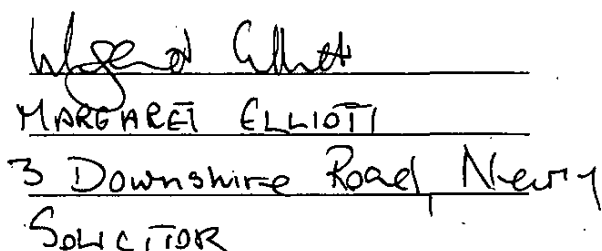 Margaret Elliott
MARGARET ELLIOTT
3 Downshire Road, Newry
SOLICITOR